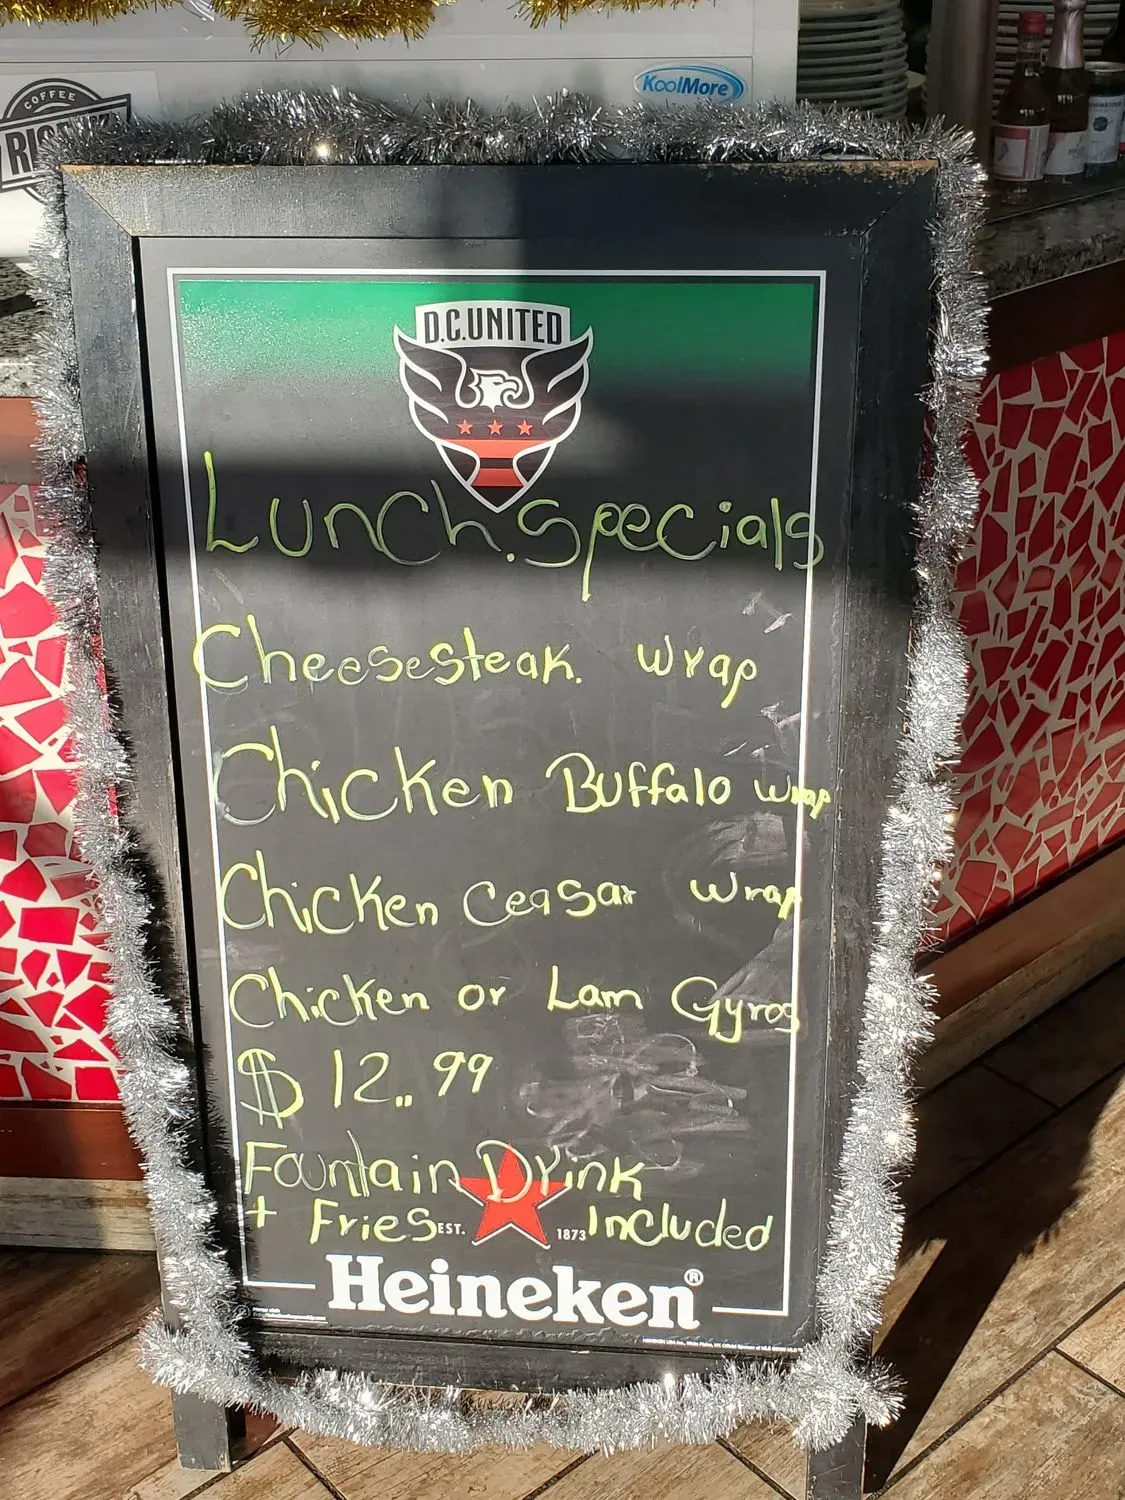 COFFEE
KoolMore
D.C.UNITED
Lunch. Specials
Cheesesteak. wrap
Chicken Buffalo wrap
Chicken Ceasar wrap
Chicken or Lam Gyros
$ 12.. 99
Fountain Drink
+ Fries Included
EST. 1873
Heineken®